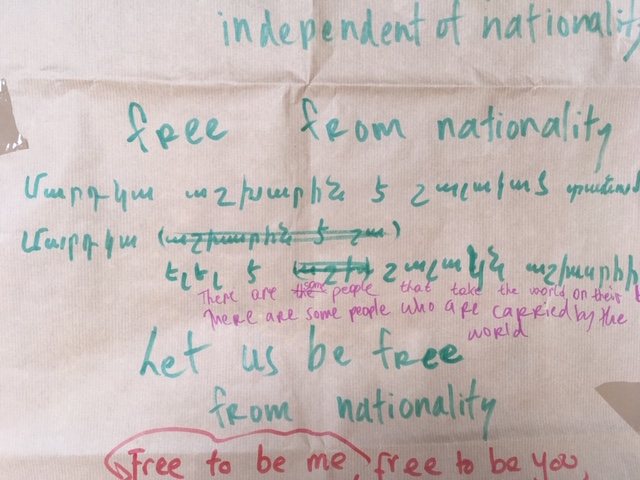 independent of nationality
free from nationality
Մարդ կա աշխարհն է շալակած
Մարդ կա (աշխարհն է շա)
էլ է
There are the some people that take the world on their
There are some people who are carried by the
world
Let us be free
from nationality
Free to be me, free to be you,